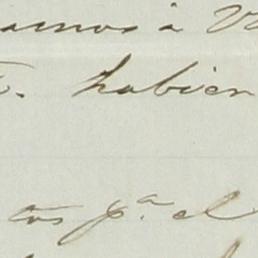 amos á V
. habien
tos p.ª el